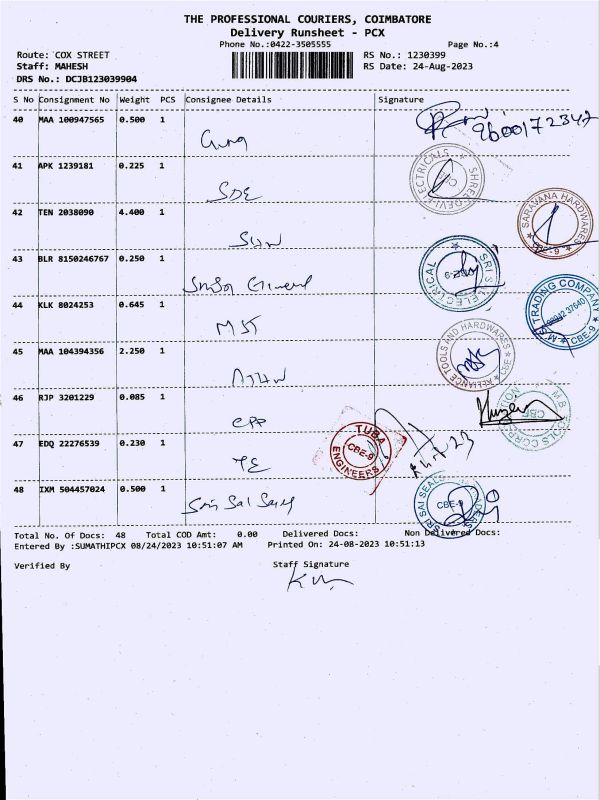 THE PROFESSIONAL COURIERS, COIMBATORE
Delivery Runsheet - PCX
Phone No.:0422-3505555 Page No.:4
Route: COX STREET RS No.: 1230399
Staff: MAHESH RS Date: 24-Aug-2023
DRS No.: DCJB123039904
S No Consignment No Weight PCS Consignee Details Signature
40 MAA 100947565 0.500 1
9600172342
41 APK 1239181 0.225 1
SHREE DEVI ELECTRICALS
SDE
42 TEN 2038090 4.400 1
SARAVANA HARDWARES
CBE-9
43 BLR 8150246767 0.250 1
44 KLK 8024253 0.645 1
TRADING COMPANY
CBE-9
45 MAA 104394356 2.250 1
RELIANCE TOOLS AND HARDWARES
46 RJP 3201229 0.085 1
CPP
47 EDQ 22276539 0.230 1
TUBA ENGINEERS
CBE-9
TE
48 IXM 504457024 0.500 1
SRI SAI SEALS
CBE-9
Total No. Of Docs: 48 Total COD Amt: 0.00 Delivered Docs: Non Delivered Docs:
Entered By :SUMATHIPCX 08/24/2023 10:51:07 AM Printed On: 24-08-2023 10:51:13
Verified By Staff Signature